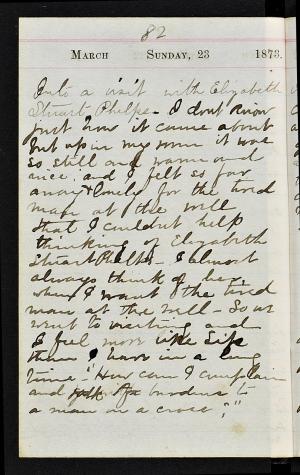 82
MARCH SUNDAY, 23 1873.
Into a visit with Elizabeth
Stuart Phelps - I dont know
just how it came about
but up in my room it was
so still and warm and
nice and I felt so far
away & lonely for the tired
man at the mill
that I couldnt help
thinking of Elizabeth
Stuart Phelps - I almost
always think of her
when I want the tired
man at the mill - So we
went to meeting and
I feel more like life
than I have in a long
time - "How can I complain
and burdens to
a man on a cross;"